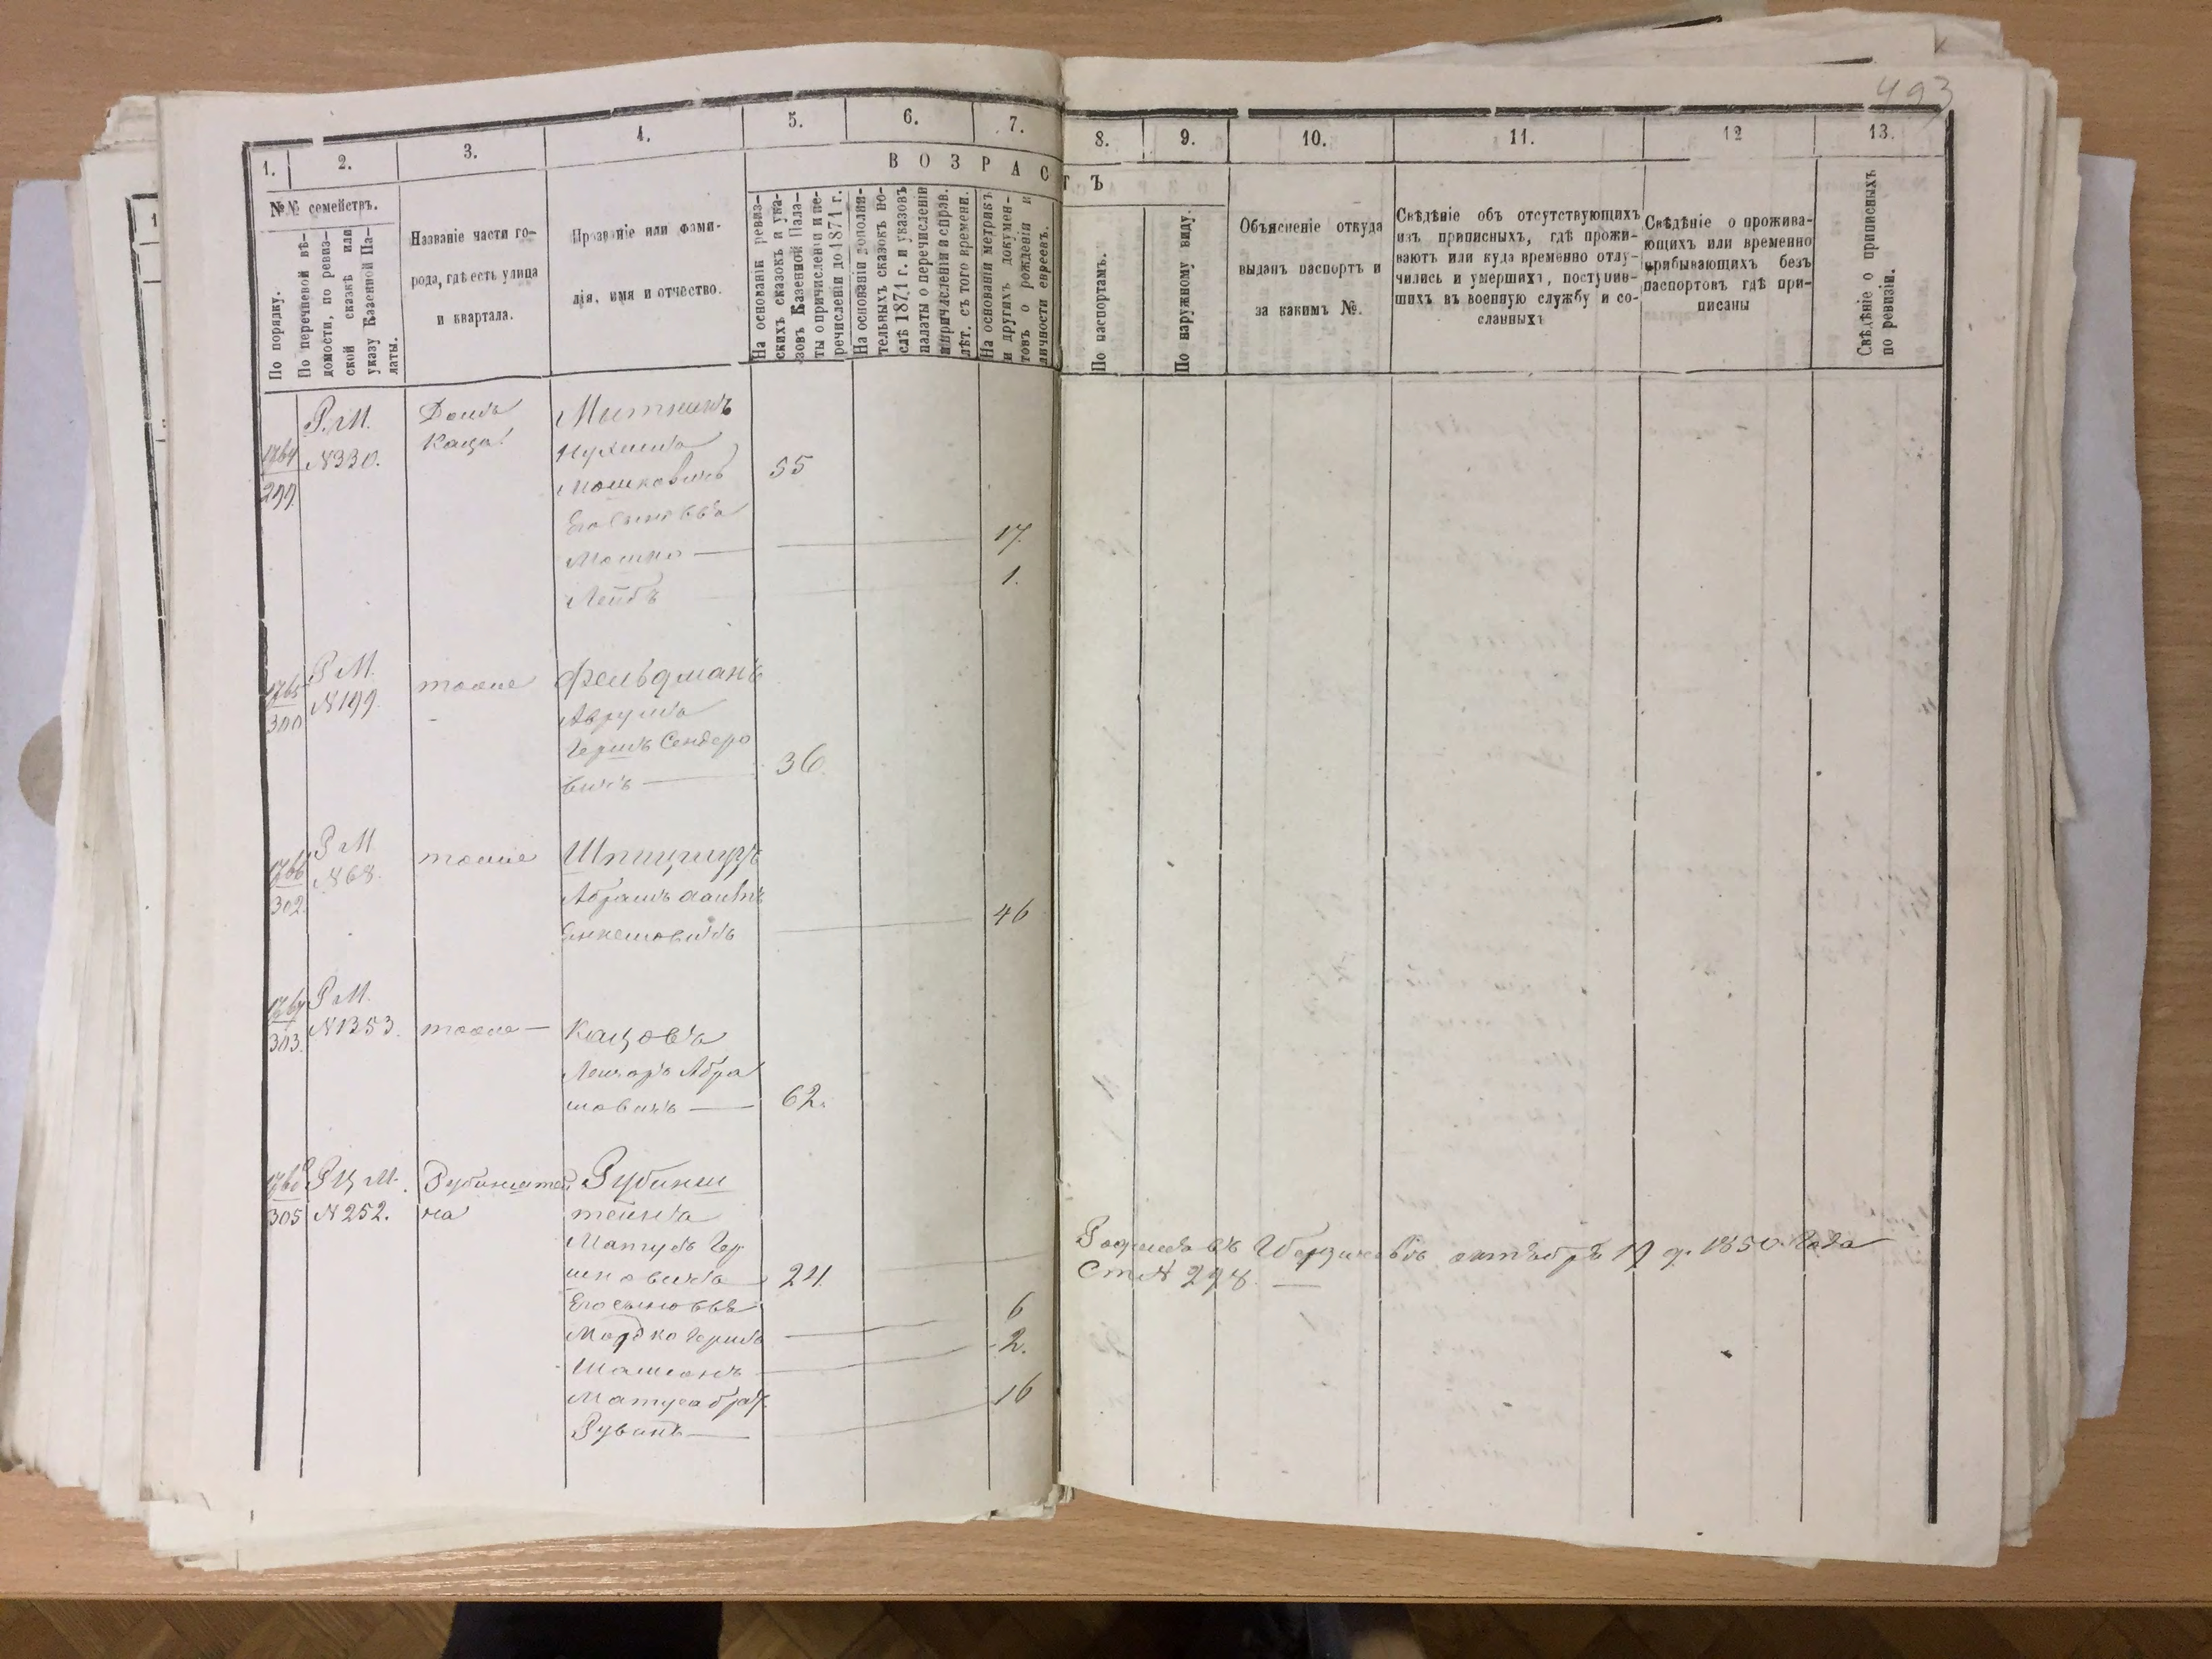 493
1.
2.
3.
4.
5.
6.
7.
8.
9.
10.
11.
12
13.
ВОЗРАСТЪ
№№ семействъ.
По порядку.
По перечневой вѣ-
домости, по ревиз-
ской сказкѣ или
указу Казенной Па-
латы.
Названіе части го-
рода, гдѣ есть улица
и квартала.
Прозваніе или фами-
лія, имя и отчество.
На основаніи ревиз-
скихъ сказокъ и ука-
зовъ Казенной Пала-
ты о причисленіи и пе-
речисленіи до 1871 г.
На основаніи дополни-
тельныхъ сказокъ по-
слѣ 1871 г. и указовъ
палаты о перечисленіи
и причисленіи и справ.
лѣт. съ того времени.
На основаніи метрикъ
и другихъ докумен-
товъ о рожденіи и
личности евреевъ.
По паспортамъ.
По наружному виду.
Объясненіе откуда
выданъ паспортъ и
за какимъ №.
Свѣдѣніе объ отсутствующихъ
изъ приписныхъ, гдѣ прожи-
ваютъ или куда временно отлу-
чились и умершихъ, поступив-
шихъ въ военную службу и со-
сланныхъ
Свѣдѣніе о прожива-
ющихъ или временно
прибывающихъ безъ
паспортовъ гдѣ при-
писаны
Свѣдѣніе о приписныхъ
по ревизіи.
1764
299
Р. М.
№330.
Домъ
Каца
Мошковичъ
55
Его сыновья
Мошко — 17
Лейбъ 1.
1765
300
Р М.
№199.
тоже
Фельдманъ
Аврумъ
Гершъ Сендеро
вичъ — 36.
1766
302.
Р М
№68.
тоже
Абрамъ
46
1767
303.
Р М.
№1353.
тоже —
Кацовъ
Абра
мовичъ — 62.
1768
305
Р Ц М.
№252.
Рубинштей
на
Рубинш
тейнъ
Матусъ Гер
шковичъ
Его сыновья
Мордко Гершъ — 6
2.
Матуса брат
Рувинъ — 16
Родился въ Бердичевѣ октября 19 д. 1850 года
Ст № 298. —